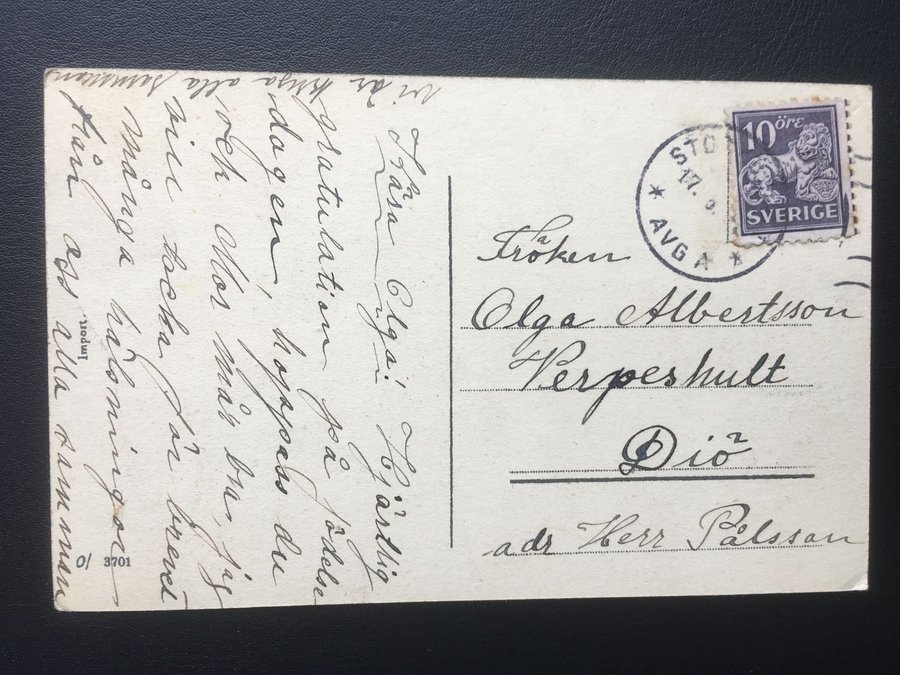 Kära Olga! Hjärtlig
gratulation på födelse
dagen, hoppas du
och Mor mår bra, jag
vill tacka för brevet
många hälsningar
från oss alla samman
vi är krya alla samman
10 ÖRE
SVERIGE
STO
17.
* AVGA *
Fröken
Olga Albertsson
Verpeshult
Diö
adr Herr Pålsson
Import.
O/ 3701